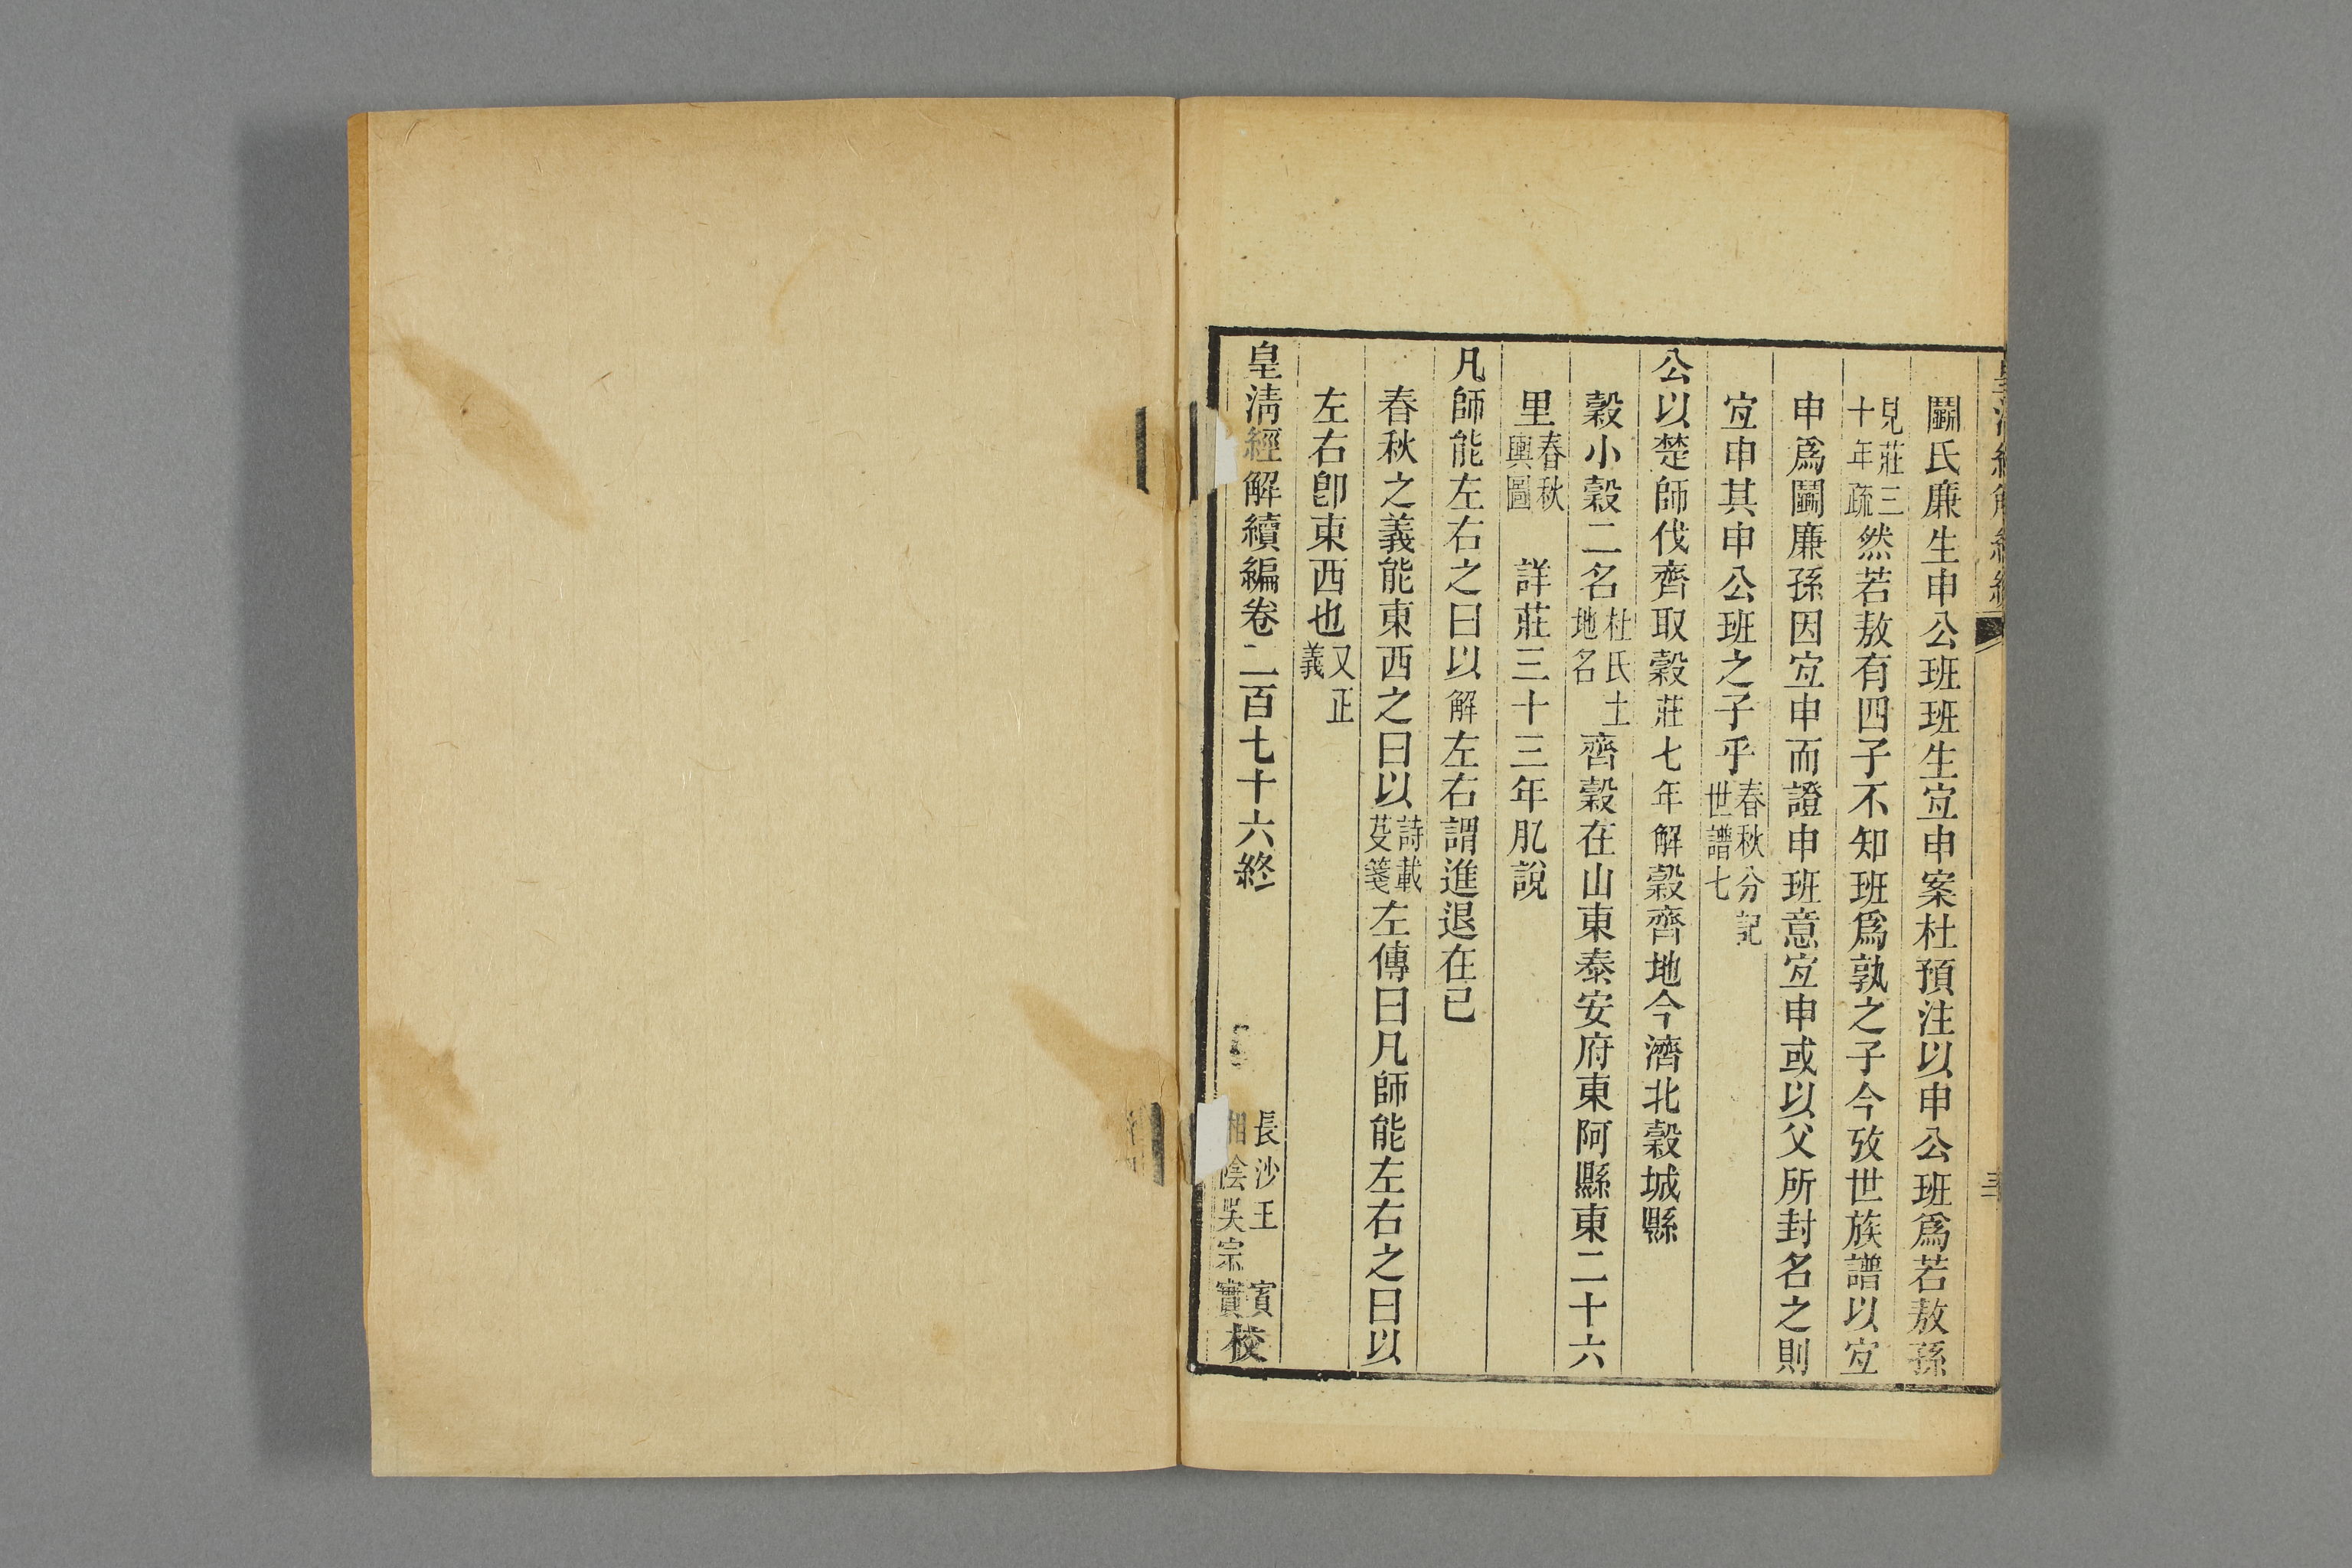 鬬氏廉生申公班班生宜申案杜預注以申公班爲若敖孫
見莊三十年疏然若敖有四子不知班爲孰之子今攷世族譜以宜
申爲鬬廉孫因宜申而證申班意宜申或以父所封名之則
宜申其申公班之子乎春秋分記世譜七
公以楚師伐齊取穀莊七年解穀齊地今濟北穀城縣
穀小穀二名杜氏土地名齊穀在山東泰安府東阿縣東二十六
里春秋輿圖 詳莊三十三年凡說
凡師能左右之曰以解左右謂進退在已
春秋之義能東西之曰以詩載芟箋左傳曰凡師能左右之曰以
左右卽東西也又正義
皇淸經解續編卷二百七十六終 長沙王 賓 湘陰吳宗實校